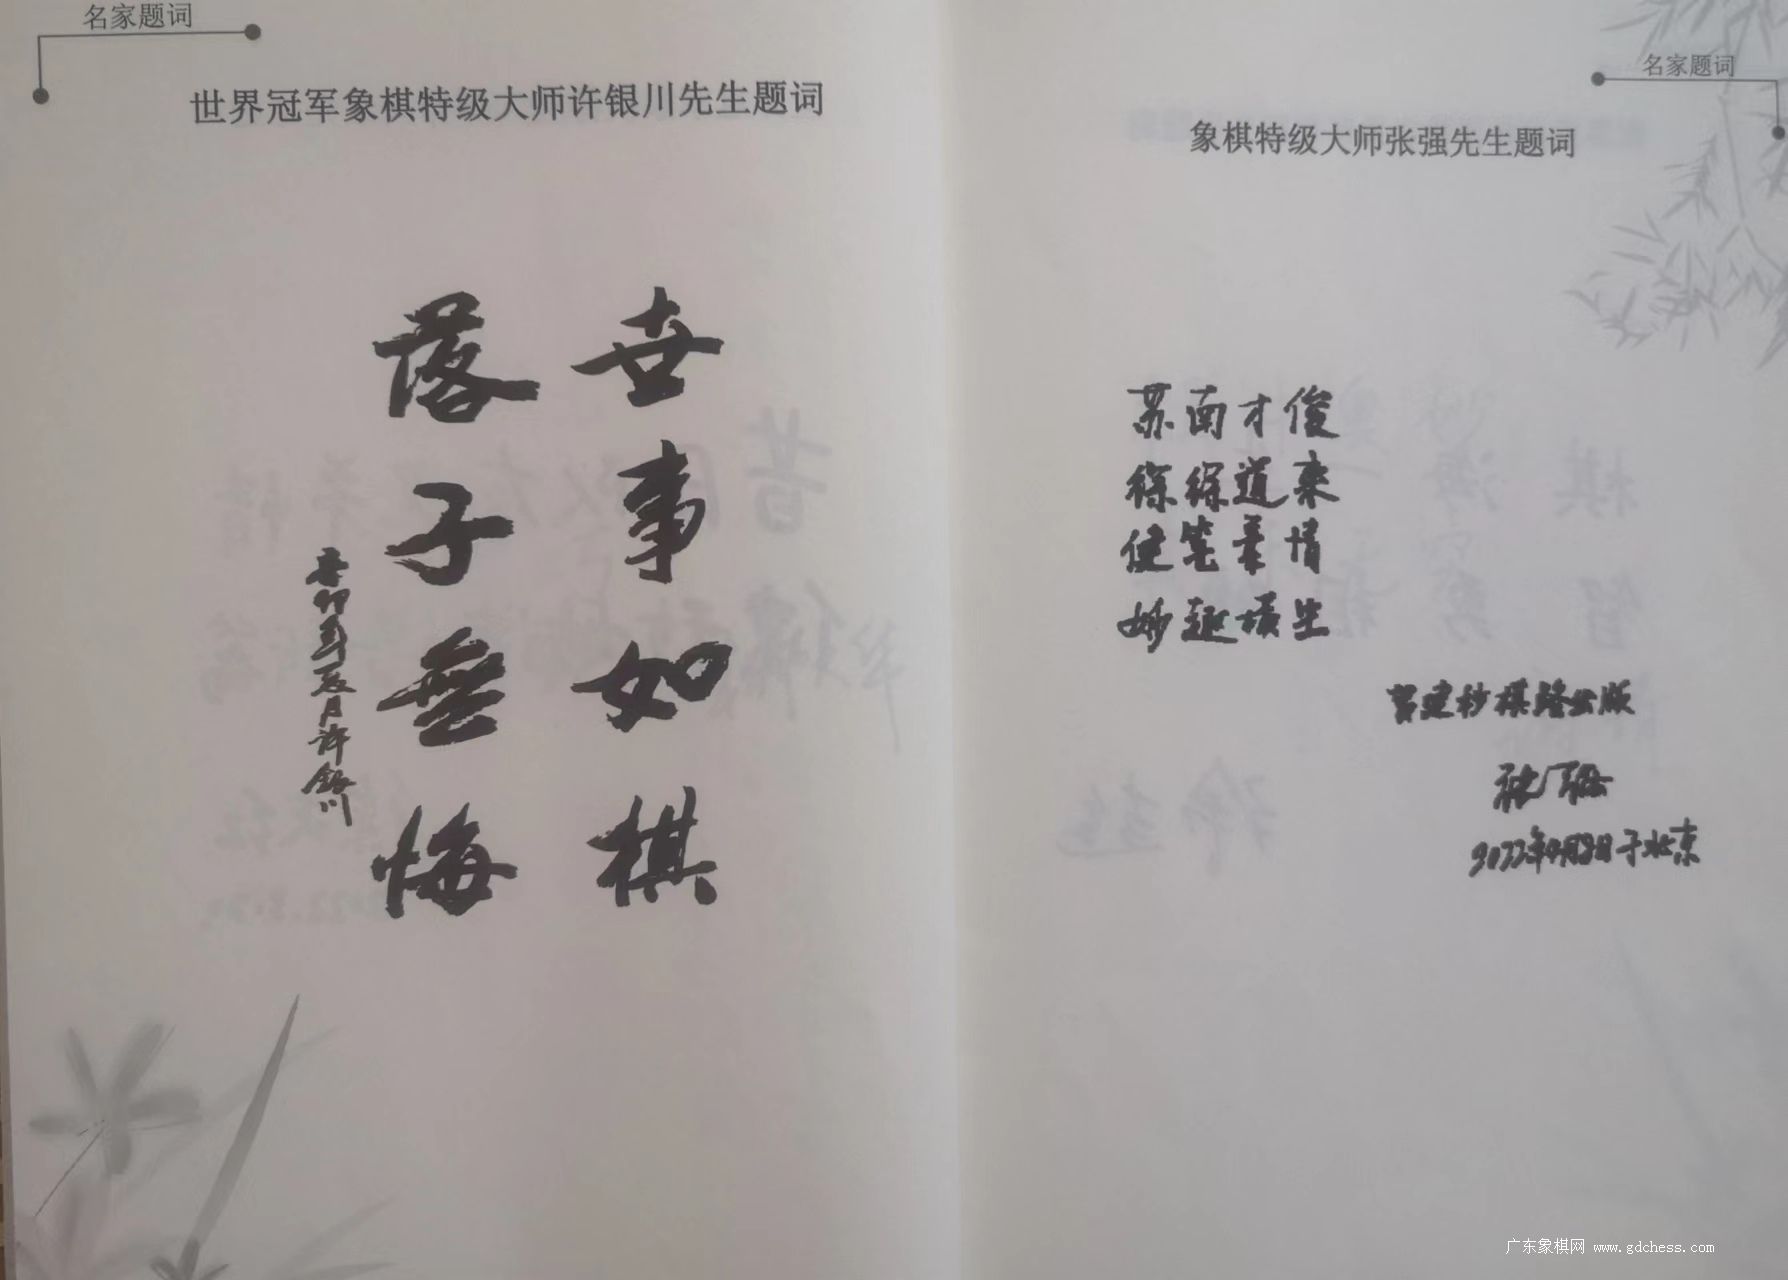 名家题词
世界冠军象棋特级大师许银川先生题词
世事如棋
落子無悔
辛卯年辰月许银川
名家题词
象棋特级大师张强先生题词
苏南才俊
徐徐道来
健笔豪情
妙趣横生
贺建秒棋缘出版
张强
2022年4月8日于北京
广东象棋网 www.gdchess.com